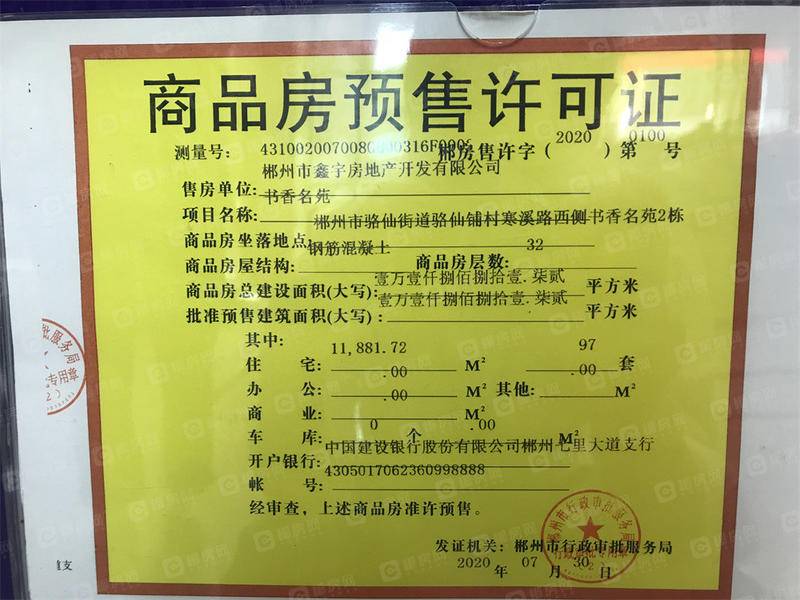 商品房预售许可证
测量号: 郴房售许字（2020）第0100号
售房单位: 郴州市鑫宇房地产开发有限公司
项目名称: 书香名苑
商品房坐落地点: 郴州市骆仙街道骆仙铺村寒溪路西侧书香名苑2栋
商品房屋结构: 钢筋混凝土 商品房层数: 32
商品房总建设面积(大写): 壹万壹仟捌佰捌拾壹.柒贰 平方米
批准预售建筑面积(大写): 壹万壹仟捌佰捌拾壹.柒贰 平方米
其中:
住宅: 11,881.72 M² 97 套
办公: .00 M² 其他: .00 M²
商业: .00 M²
车库: 0 个 .00 M²
开户银行: 中国建设银行股份有限公司郴州七里大道支行
帐号: 4305017062360998888
经审查，上述商品房准许预售。
发证机关: 郴州市行政审批服务局
2020 年 07 月 30 日
郴州市行政审批服务局